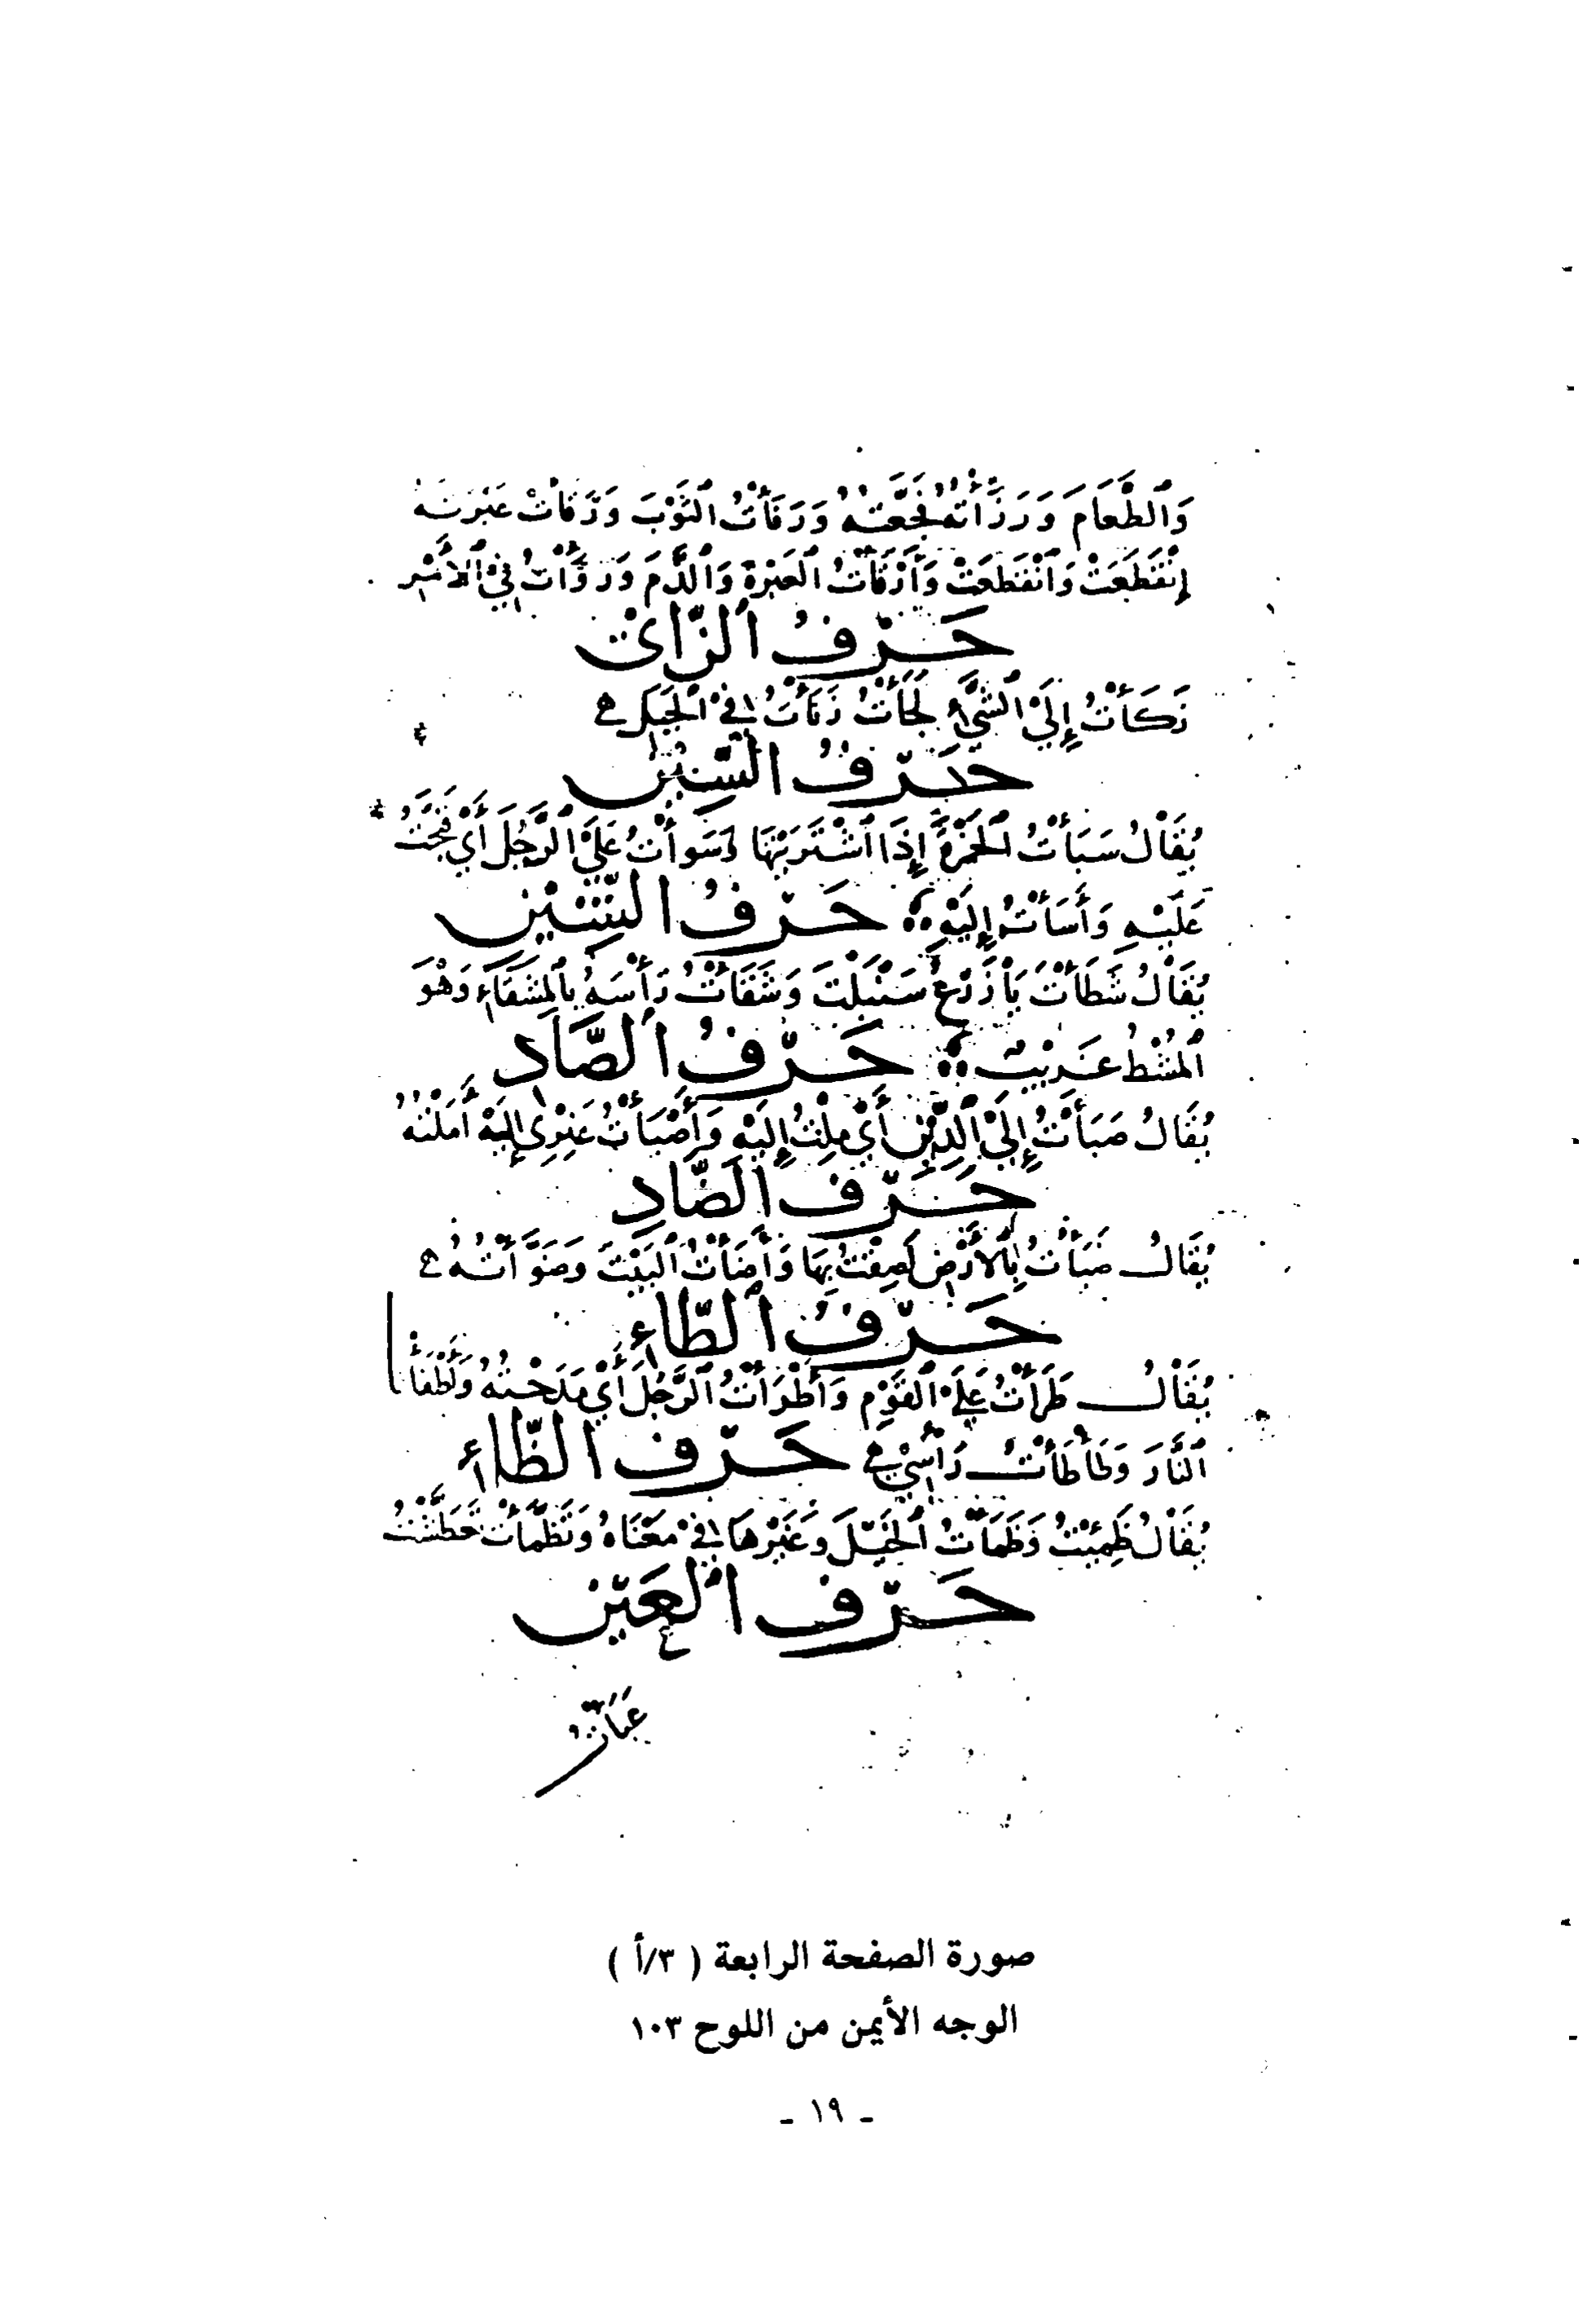 وَالطَّعَامَ وَرَزَأْتُهُ فَجَّعْتُهُ وَرَفَأْتُ الثَّوْبَ وَرَقَأَتْ عَبْرَتُهُ
إِنْقَطَعَتْ وَانْقَطَعَتْ وَأَرْقَأْتُ العَبْرَةَ وَالدَّمَ وَرَوَّأْتُ فِي الأَمْرِ
حَرْفُ الزَّاي
زَكَأْتُ إِلَى الشَّيْءِ لَجَأْتُ زَنَأْتُ فِي الْجَبَلِ
حَرْفُ السِّين
يُقَالُ سَبَأْتُ الْخَمْرَةَ إِذَا اشْتَرَيْتَهَا وَسَوَأْتُ عَلَى الرَّجُلِ أَيْ قَبَّحْتُ
عَلَيْهِ وَأَسَأْتُ إِلَيْهِ حَرْفُ الشِّين
يُقَالُ شَطَأْتَ يَا زَرْعُ سَنْبَلْتَ وَشَقَأْتُ رَأْسَهُ بِالْمِشْقَاءِ وَهْوَ
الْمُشْطُ حَرْفُ الصَّاد
يُقَالُ صَبَأْتُ إِلَى الدِّيْنِ أَيْ مِلْتُ إِلَيْهِ وَأَصْبَأْتُ غَيْرِي إِلَيْهِ أَمَلْتُهُ
حَرْفُ الضَّادِ
يُقَالُ ضَبَأْتُ بِالأَرْضِ لَصِقْتُ بِهَا وَأَضَأْتُ الْبَيْتَ وَضَوَّأْتُهُ
حَرْفُ الطَّاءِ
يُقَالُ طَرَأْتُ عَلَى الْقَوْمِ وَأَطْرَأْتُ الرَّجُلَ أَيْ مَدَحْتُهُ وَأَطْفَأْتُ
النَّارَ وَطَأْطَأْتُ رَأْسِي حَرْفُ الظَّاءِ
يُقَالُ ظَمِئْتُ وَظَمَّأْتُ الْخَيْلَ وَغَيْرَهَا فِي مَعْنَاهُ وَتَظَمَّأْتُ تَعَطَّشْتُ
حَرْفُ الْعَيْن
عَبَأْتُ
صورة الصفحة الرابعة ( ٣/أ )
الوجه الأيمن من اللوح ١٠٣
- ١٩ -